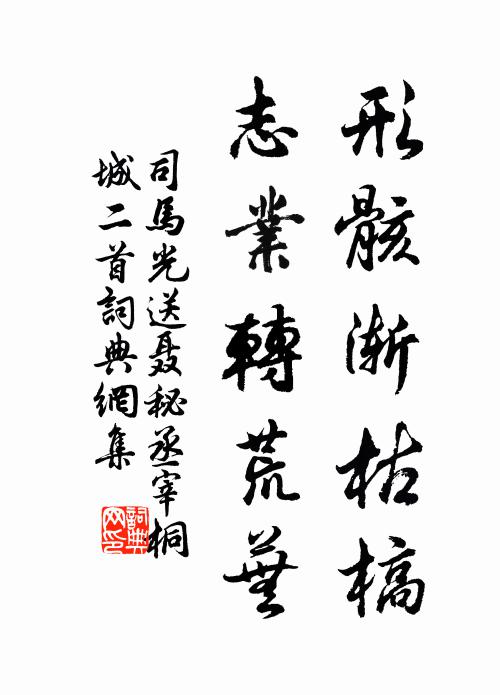 形骸漸枯槁
志業轉荒蕪
司馬光送聂秘丞宰桐
城二首詞典網集
詞典
网印